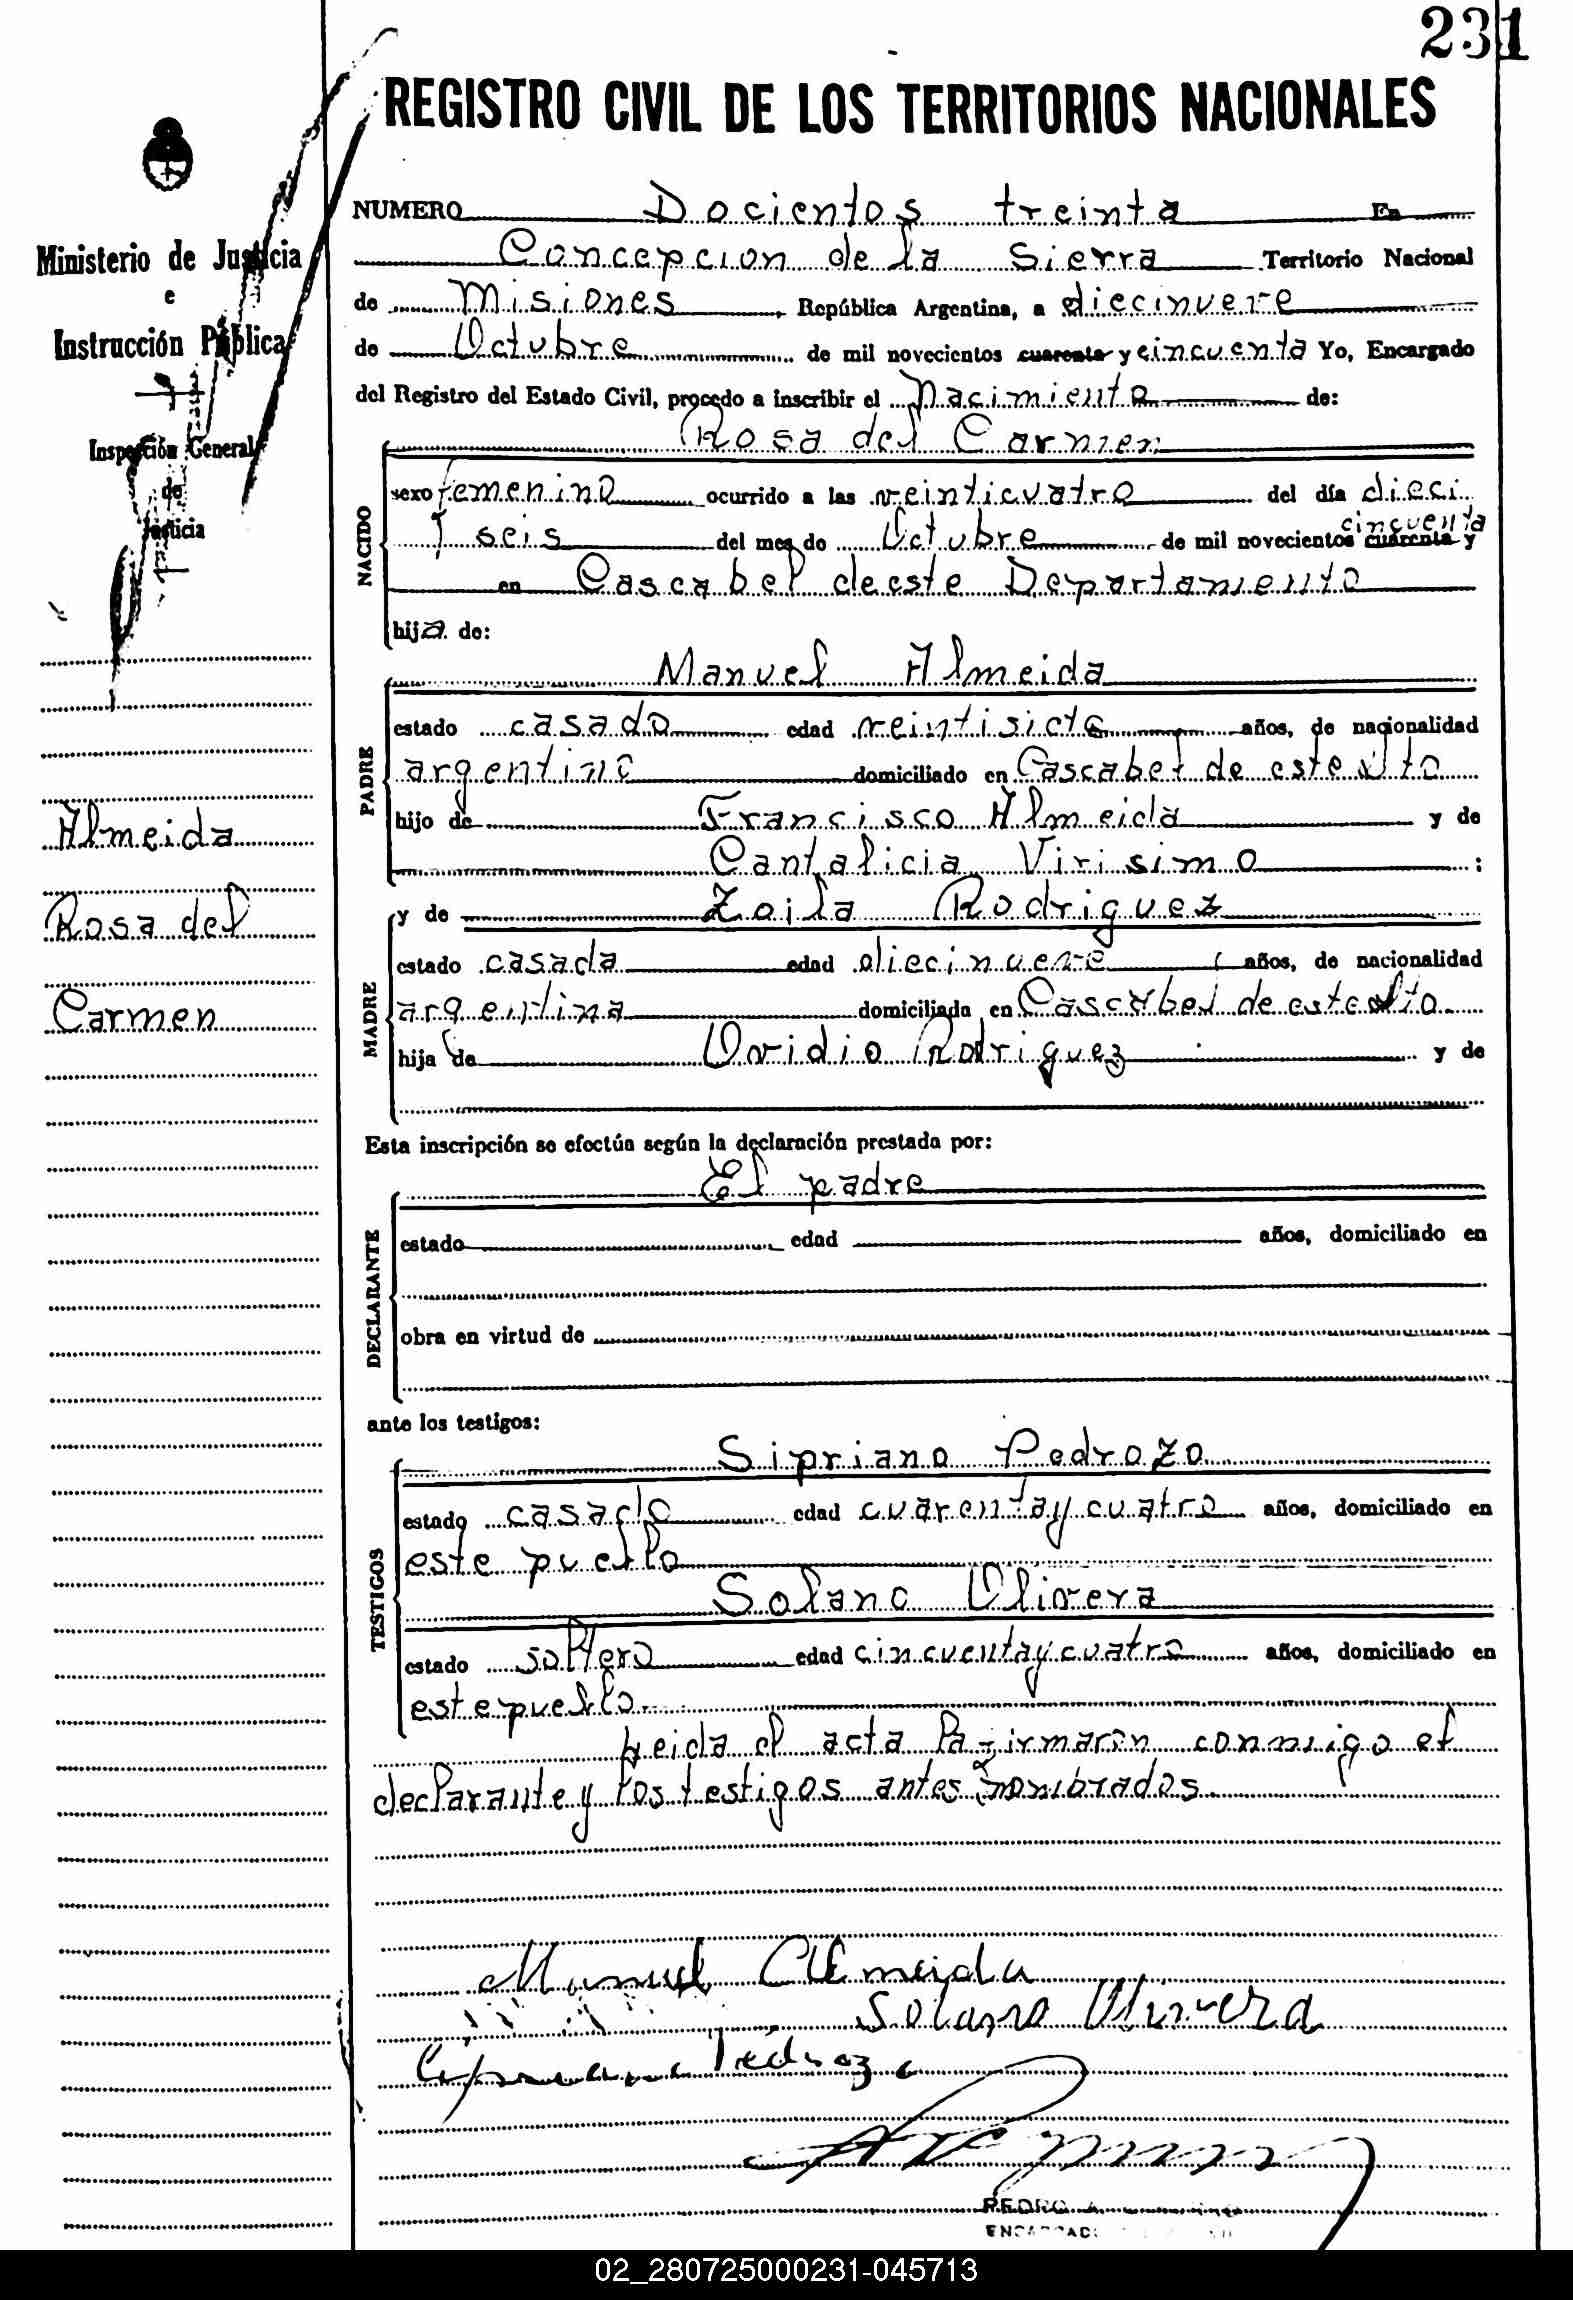 231
REGISTRO CIVIL DE LOS TERRITORIOS NACIONALES
Ministerio de Justicia
e
Instrucción Pública
Inspección General
de
Justicia
Almeida
Rosa del
Carmen
NUMERO Docientos treinta En
Concepcion de la Sierra Territorio Nacional
de Misiones, República Argentina, a diecinueve
de Octubre de mil novecientos cuarenta y cincuenta Yo, Encargado
del Registro del Estado Civil, procedo a inscribir el Nacimiento de:
Rosa del Carmen
NACIDO
sexo femenino ocurrido a las veinticuatro del día dieci
y seis del mes de Octubre de mil novecientos cuarenta y cincuenta
en Cascabel de este Departamiento
hija de:
PADRE
Manuel Almeida
estado casado edad veintisiete años, de nacionalidad
argentino domiciliado en Cascabel de este Dto
hijo de Francisco Almeida y de
Cantalicia Virisimo ;
MADRE
y de Zoila Rodriguez
estado casada edad diecinueve años, de nacionalidad
argentina domiciliada en Cascabel de este Dto.
hija de Ovidio Rodriguez y de
Esta inscripción se efectúa según la declaración prestada por:
DECLARANTE
El padre
estado edad años, domiciliado en
obra en virtud de
ante los testigos:
TESTIGOS
Sipriano Pedrozo
estado casado edad cuarenta y cuatro años, domiciliado en
este pueblo
Solano Olivera
estado soltero edad cincuenta y cuatro años, domiciliado en
este pueblo.
Leida el acta la firmaron conmigo el
declarante y los testigos antes nombrados.
Manuel Almeida
Solano Olivera
Cipriano Pedrozo
PEDRO A.
02_280725000231-045713